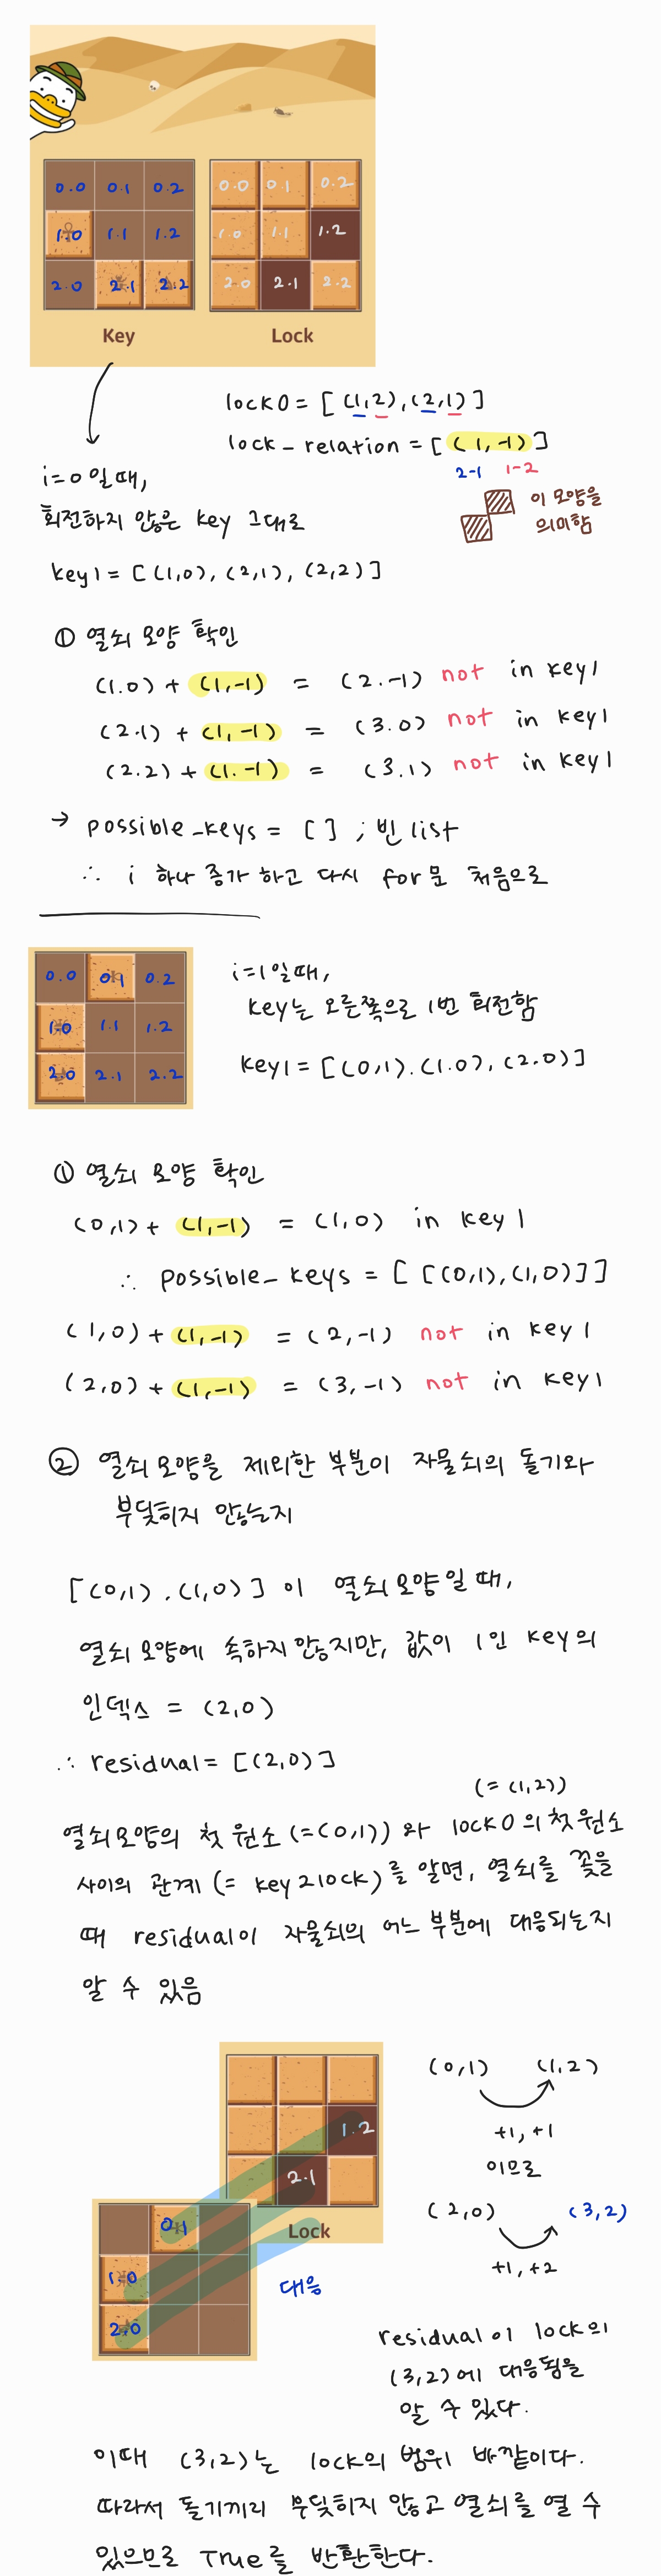 0.0 0.1 0.2
1.0 1.1 1.2
2.0 2.1 2.2
Key
0.0 0.1 0.2
1.0 1.1 1.2
2.0 2.1 2.2
Lock
lock0 = [(1,2),(2,1)]
lock_relation = [(1,-1)]
2-1 1-2
이 모양을
의미함
i=0 일때,
회전하지 않은 key 그대로
key1 = [(1,0), (2,1), (2,2)]
① 열쇠 모양 확인
(1.0) + (1,-1) = (2.-1) not in key1
(2.1) + (1,-1) = (3.0) not in key1
(2.2) + (1.-1) = (3.1) not in key1
→ possible_keys = [] ; 빈 list
∴ i 하나 증가 하고 다시 for문 처음으로
0.0 0.1 0.2
1.0 1.1 1.2
2.0 2.1 2.2
i=1일때,
key는 오른쪽으로 1번 회전함
key1 = [(0,1).(1.0), (2.0)]
① 열쇠 모양 확인
(0,1) + (1,-1) = (1,0) in key1
∴ possible_keys = [[(0,1),(1,0)]]
(1,0) + (1,-1) = (2,-1) not in key1
(2,0) + (1,-1) = (3,-1) not in key1
② 열쇠 모양을 제외한 부분이 자물쇠의 돌기와
부딪히지 않는지
[(0,1).(1,0)] 이 열쇠모양일 때,
열쇠 모양에 속하지 않지만, 값이 1인 key의
인덱스 = (2,0)
∴ residual = [(2,0)]
(=(1,2))
열쇠모양의 첫 원소(=(0,1))와 lock0의 첫 원소
사이의 관계(= key2lock)를 알면, 열쇠를 꽂을
때 residual이 자물쇠의 어느 부분에 대응되는지
알 수 있음
1.2
2.1
Lock
0.1
1.0
2.0
대응
(0,1) (1,2)
+1,+1
이므로
(2,0) (3,2)
+1,+2
residual이 lock의
(3,2)에 대응됨을
알 수 있다.
이때 (3,2)는 lock의 범위 바깥이다.
따라서 돌기끼리 부딪히지 않고 열쇠를 열 수
있으므로 True를 반환한다.